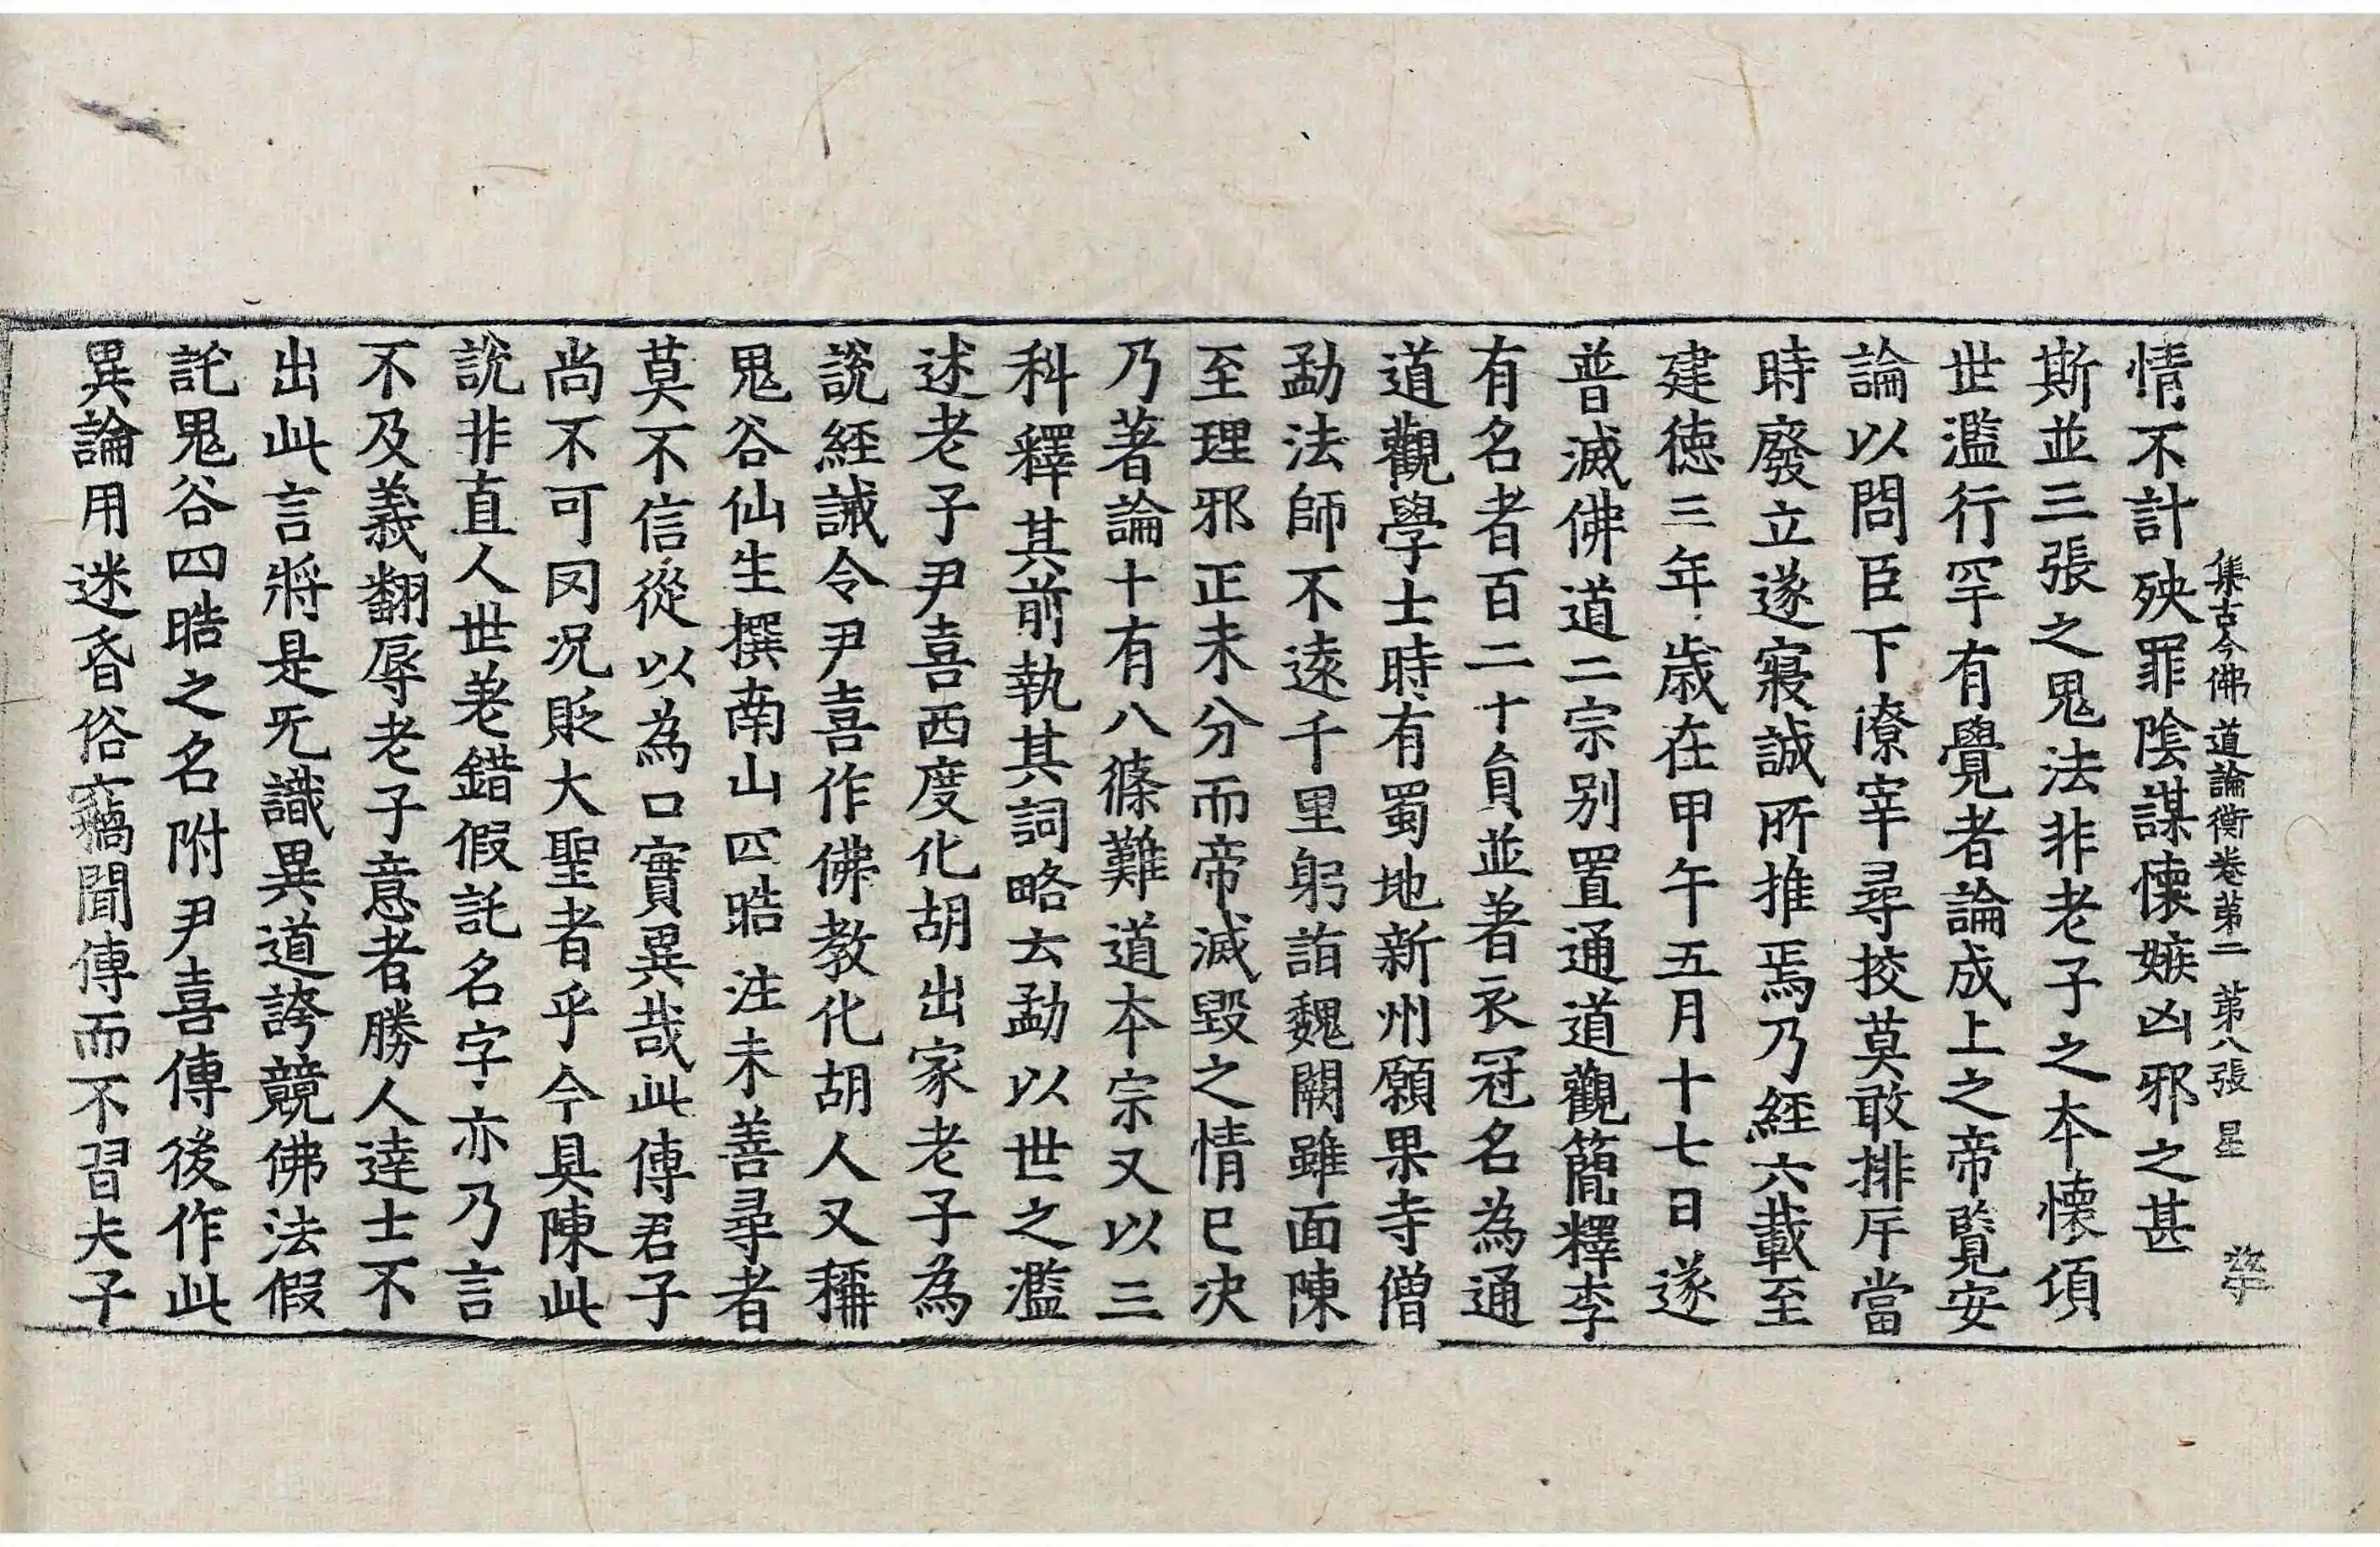 集古今佛道論衡卷第二　第八張　星
情不計殃罪陰謀懷嫉凶邪之甚
斯並三張之鬼法非老子之本懷項
世濫行罕有覺者論成上之帝覽安
論以問臣下僚宰尋挍莫敢排斥當
時廢立遂寢誠所推焉乃經六載至
建德三年歲在甲午五月十七日遂
普滅佛道二宗别置通道觀簡釋李
有名者百二十貟並著衣冠名為通
道觀學士時有蜀地新州願果寺僧
勐法師不遠千里躬詣魏闕雖面陳
至理邪正未分而帝滅毀之情已决
乃著論十有八條難道本宗又以三
科釋其前執其詞略云勐以世之濫
述老子尹喜西度化胡出家老子為
說經誡令尹喜作佛教化胡人又稱
鬼谷仙生撰南山四晧注未善尋者
莫不信從以為口實異哉此傳君子
尚不可罔况貶大聖者乎今具陳此
說非直人世差錯假託名字亦乃言
不及義翻辱老子意者勝人達士不
出此言將是旡識異道誇競佛法假
託鬼谷四晧之名附尹喜傳後作此
異論用迷昏俗竊聞傳而不習夫子